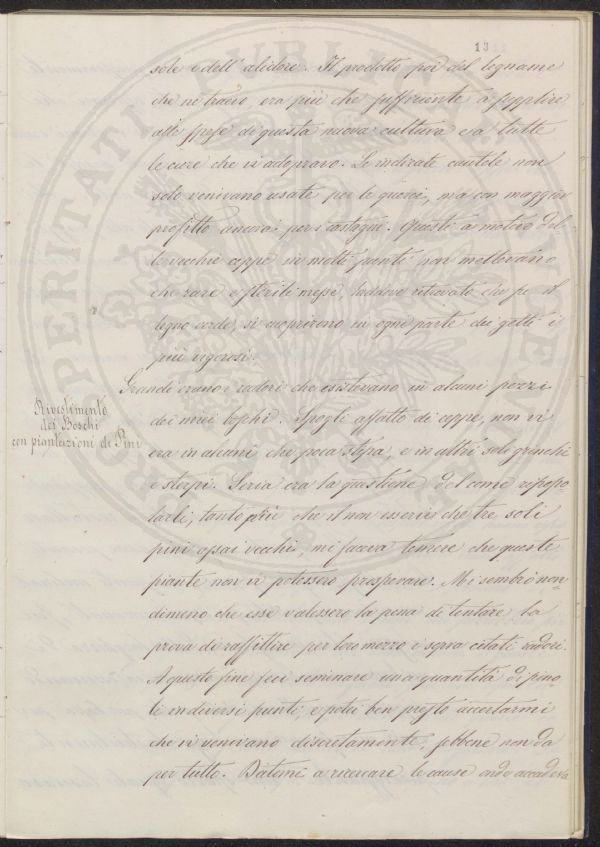 13
sole e dell' alidore. Il prodotto poi del legname
che ne traevo, era più che sufficiente a supplire
alle spese di questa nuova cultura e a tutte
le cure che vi adopravo. Le indicate cautele non
solo venivano usate per le querci, ma con maggior
profitto ancora per i castagni. Questi a motivo del
le vecchie ceppe in molti punti non mettevano
che rare e sterili messe, laddove ritrovato che fu il
legno verde, si scoprirono in ogni parte dei getti i
più vigorosi.
Rivestimento
dei Boschi
con piantazioni di Pini
Grandi erano i radori che esistevano in alcuni pezzi
dei miei boschi. Spogli affatto di ceppe, non vi
era in alcuni che poca stipa, e in altri soli ginechi
e sterpi. Seria era la questione del come ripopo
larli, tanto più che il non esservi che tre soli
pini assai vecchi, mi faceva temere che queste
piante non vi potessero prosperare. Mi sembrò non-
dimeno che esse valessero la pena di tentare la
prova di raffittire per loro mezzo i sopra citati radori.
A questo fine feci seminare una quantità di pino-
li in diversi punti, e potei ben presto accertarmi
che vi venivano discretamente, sebbene non da
per tutto. Datomi a ricercare le cause onde accadeva